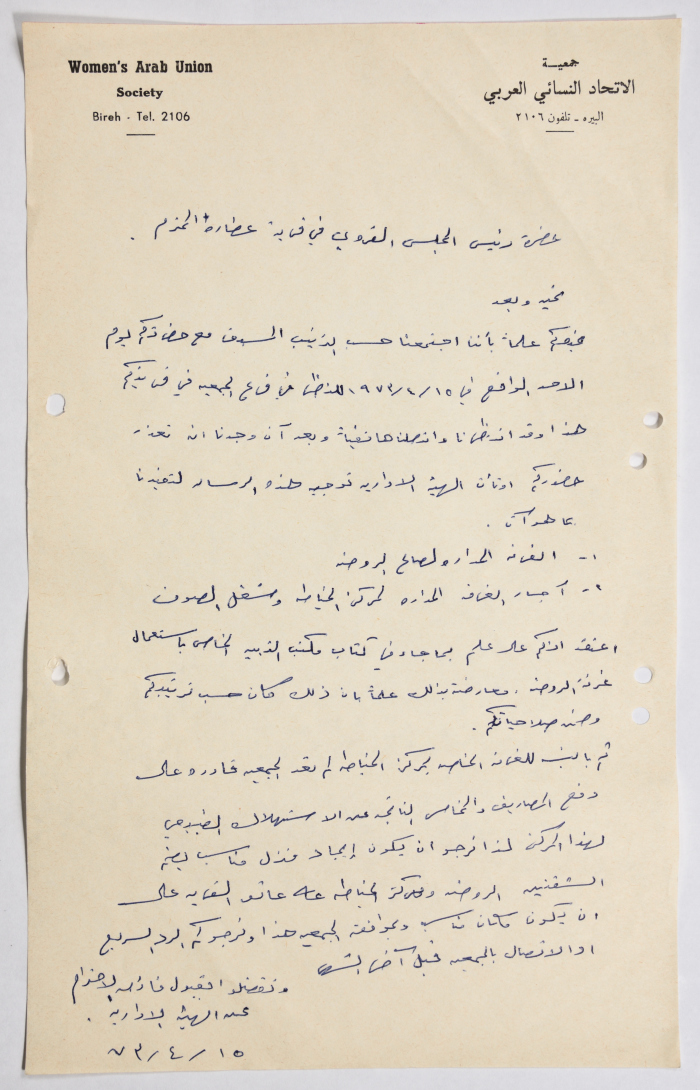 Women's Arab Union
Society
Bireh - Tel. 2106
جمعيــة
الاتحاد النسائي العربي
البيره - تلفون ٢١٠٦
حضرة رئيس المجلس القروي في قرية عطارة المحترم .
تحيه وبعد
نحيطكم علماً بأننا اجتمعنا حسب الترتيب المسبق مع حضرتكم ليوم
الاحد الواقع في ١٥/٤/١٩٧٣ للنظر في فرع الجمعيه في قريتكم
هذا وقد انتظرنا واتصلنا هاتفياً وبعد أن وجدنا انه تعذر
حضوركم ارتأت الهيئه الاداريه توجيه هذه الرساله لتفيدنا
بما هو آت .
١- الغرفه المداره لصالح الروضه
٢- آجار الغرفه المداره لمركز الخياطه ومشغل الصوف
اعتقد انكم على علم بما جاء في كتاب مكتب التربيه الخاص باستعمال
غرفة الروضه ومعارضته بذلك علماً بان ذلك كان حسب ترتيبكم
وضمن صلاحياتكم .
ثم بالنسبه للغرفه الخاصه بمركز الخياطه لم تعد الجمعيه قادره على
دفع المصاريف والخسائر الناتجه عن الاستهلاك الطبيعي
لهذا المركز لذا نرجو ان يكون إيجاد منزل مناسب يضم
الشقتين الروضه ومركز الخياطه على عاتق القريه على
ان يكون مكان مناسب وبموافقة الجمعيه هذا ونرجوكم الرد السريع
او الاتصال بالجمعيه قبل آخر الشهر
وتفضلوا بقبول فائق الاحترام
عن الهيئه الاداريه .
١٥/٤/٧٣